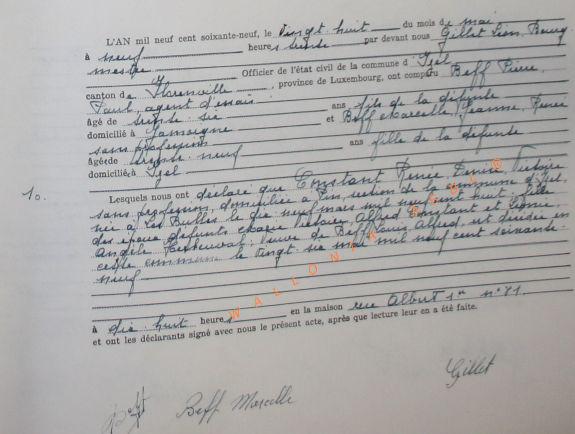 L'AN mil neuf cent soixante-neuf, le vingt huit du mois de mai
à neuf heures trente par devant nous Gillet Léon, Bourg
mestre Officier de l'état civil de la commune d'Izel
canton de Florenville, province de Luxembourg, ont comparu Beff Pierre,
Paul, agent d'essais
âgé de trente six ans fils de la défunte
domicilié à Jamoigne et Beff Marcelle, Jeanne, Renée
sans profession
âgé de trente neuf ans fille de la défunte
domicilié à Izel
10. Lesquels nous ont déclaré que Constant Renée, Denise, Victoire
sans profession, domiciliée à Pin, section de la commune d'Izel,
née à Les Bulles le dix neuf mars mil neuf cent huit, fille
des époux défunts Victoire Alfred Constant et Léonie,
Angèle veuve de Beff Louis Alfred, est décédée en
cette commune le vingt six mai mil neuf cent soixante-
neuf
à dix huit heures en la maison rue Albert 1er n° 81
et ont les déclarants signé avec nous le présent acte, après que lecture leur en a été faite.
Beff Beff Marcelle Gillet
WALLONIE